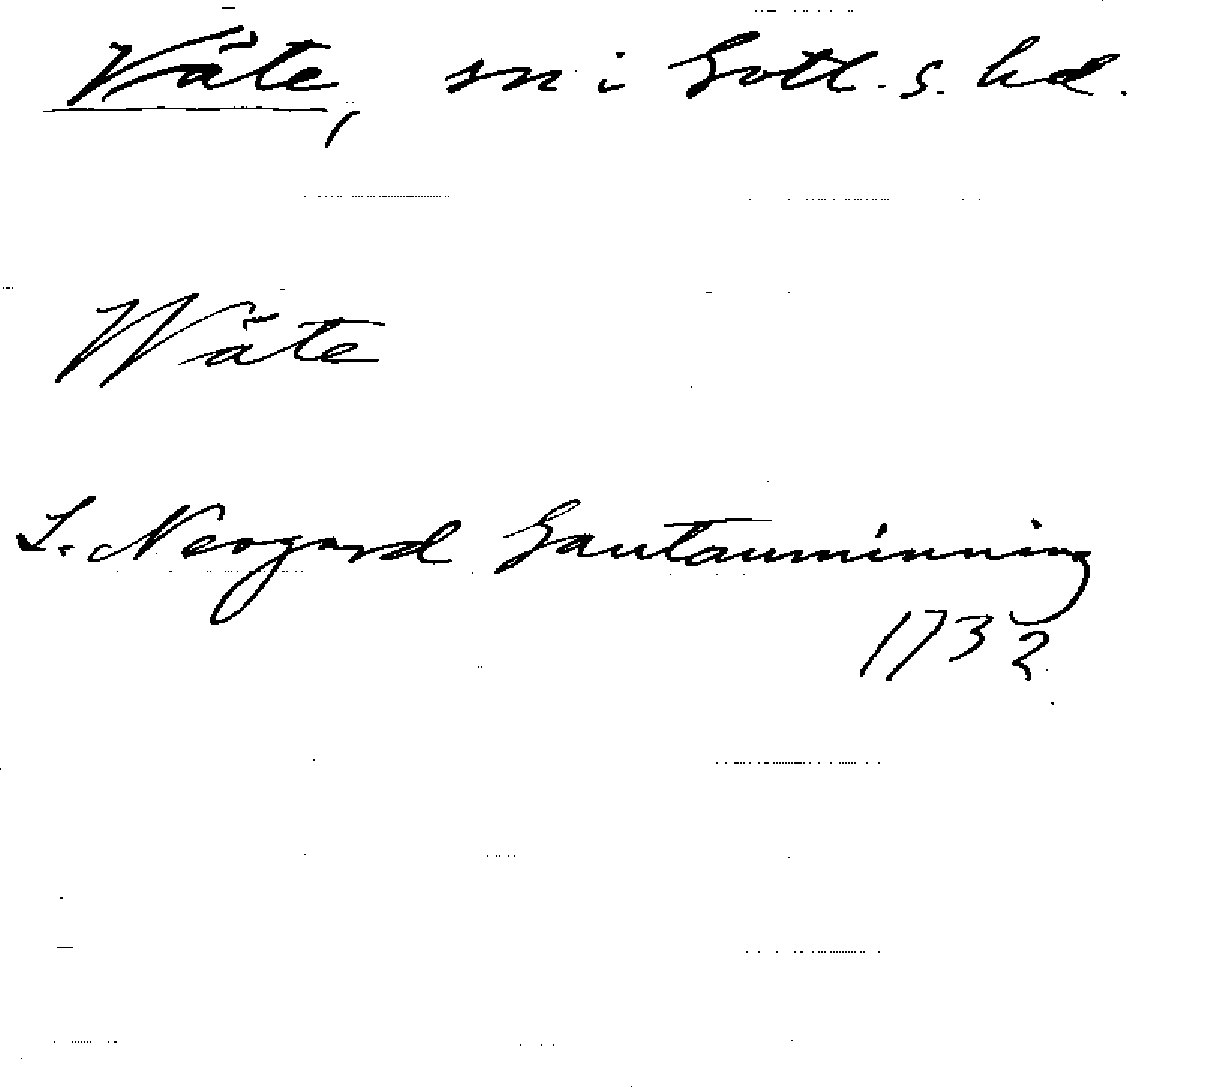 Väte, sn i Gotl. s. hd.
Wäte
L. Neogard Gautauminning
1732